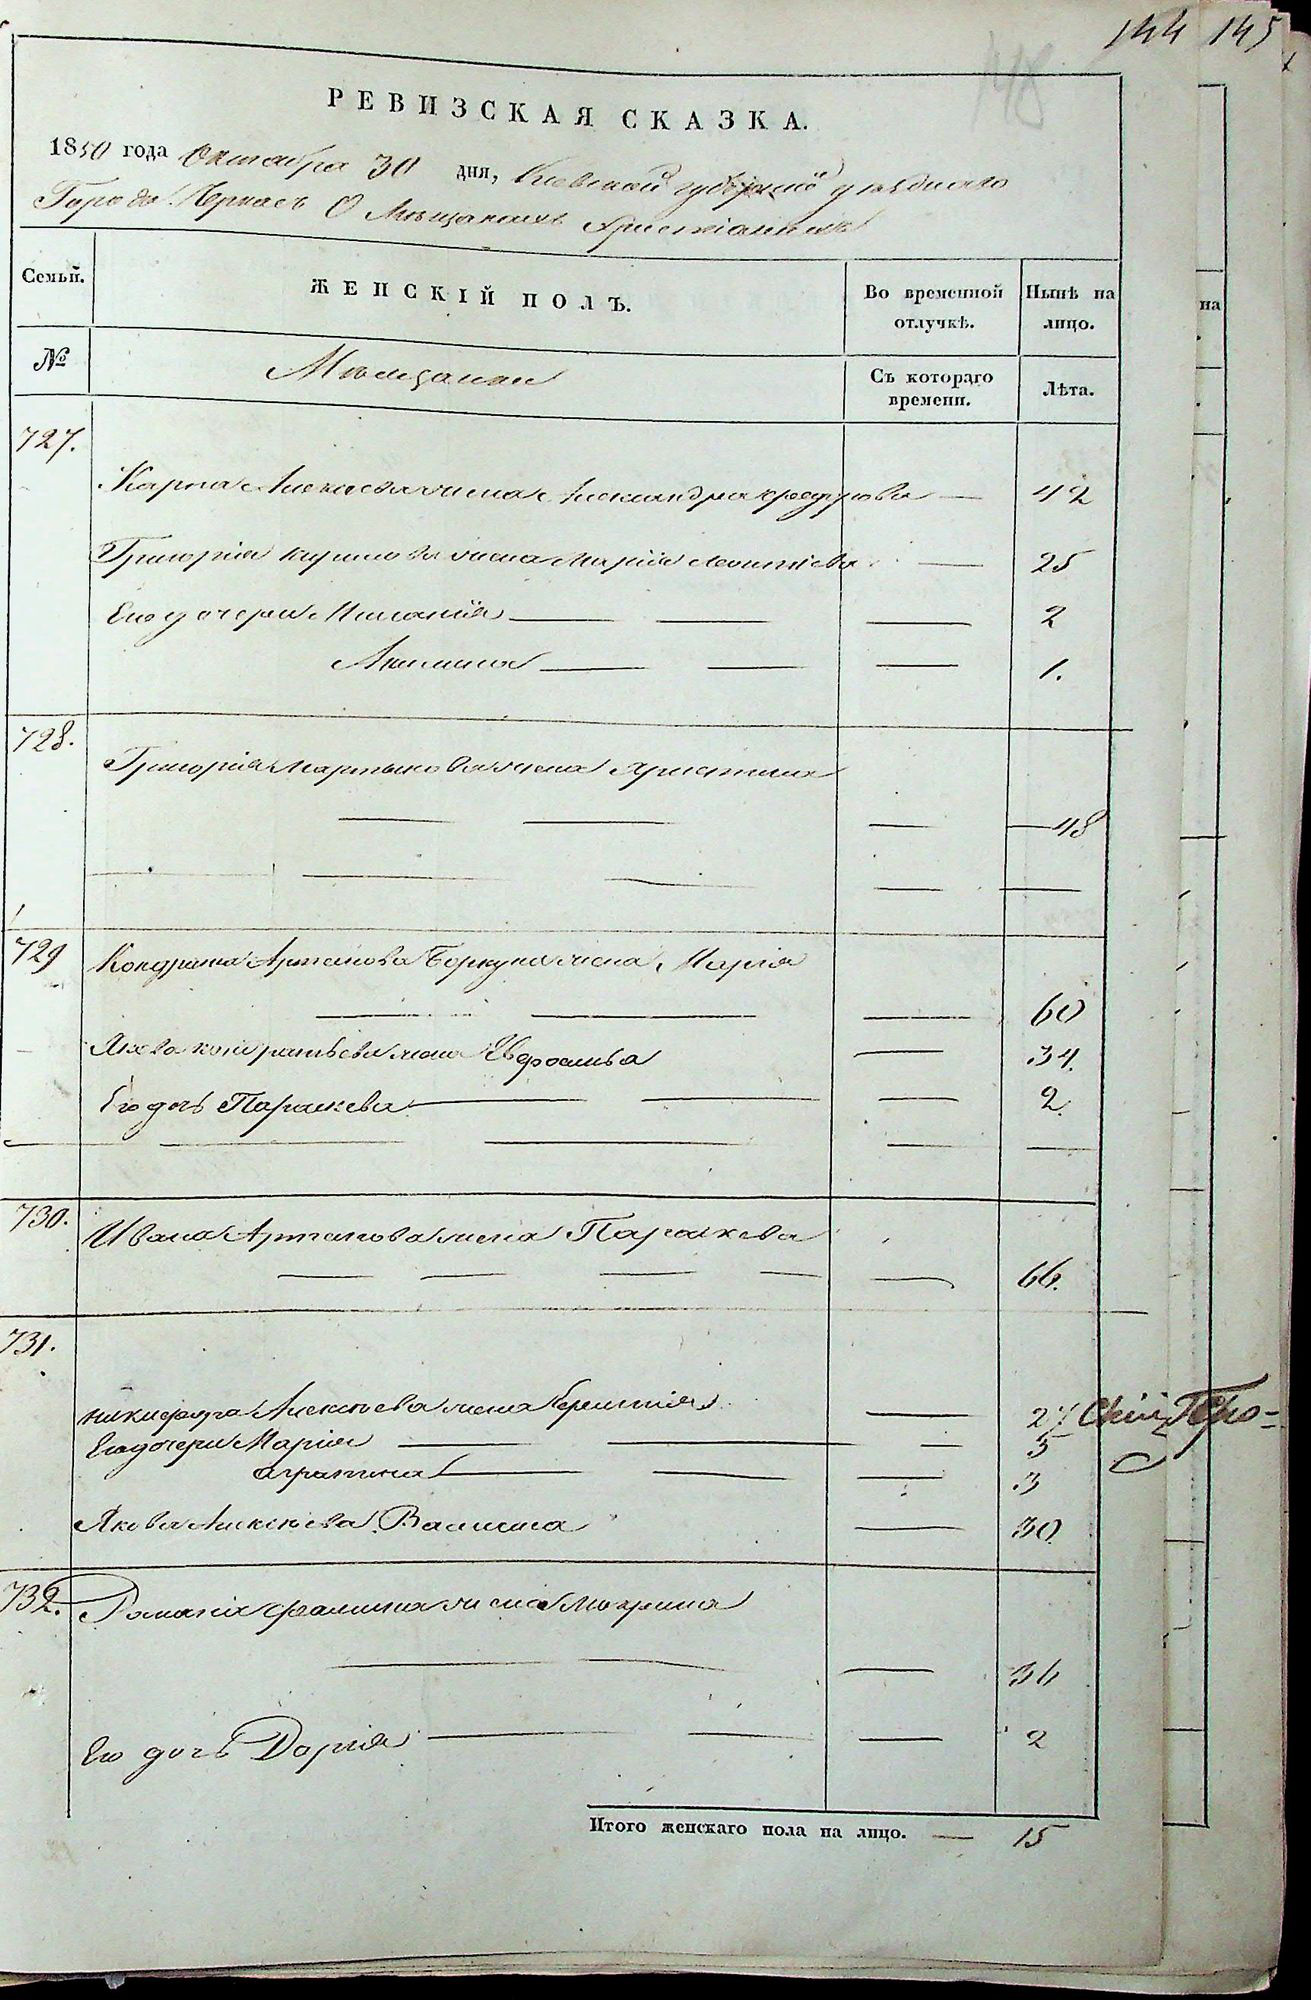 144 145
148
РЕВИЗСКАЯ СКАЗКА.
1850 года Октября 30 дня, Киевской губернии уезднаго
Города Черкасъ О Мещанахъ Христіанахъ
Семьи. ЖЕНСКІЙ ПОЛЪ. Во временной отлучкѣ. Нынѣ на лицо.
№ Мѣщанки Съ котораго времени. Лѣта.
на
727.
Карпа Алексѣева жена Александра 42
Григорія Кирилова жена Марія Леонтіева 25
Его дочери Миланія 2
Акилина 1.
728.
Григорія Мартынова жена Христина
48
729 Кондрата Артемова Боркуна жена Марія
60
Якова Кондратьева жена Евфосинья 34.
Его дочь Параскева 2.
730. Ивана Артемова жена Параскева
66.
731.
Никифора Алексѣева жена 27 Скій
Его дочери Марія 5
Агрипина 3
Якова Алексѣева Василиса 30
732. жена Мокрина
36
Его дочь Дарія 2
Итого женскаго пола на лицо. — 15